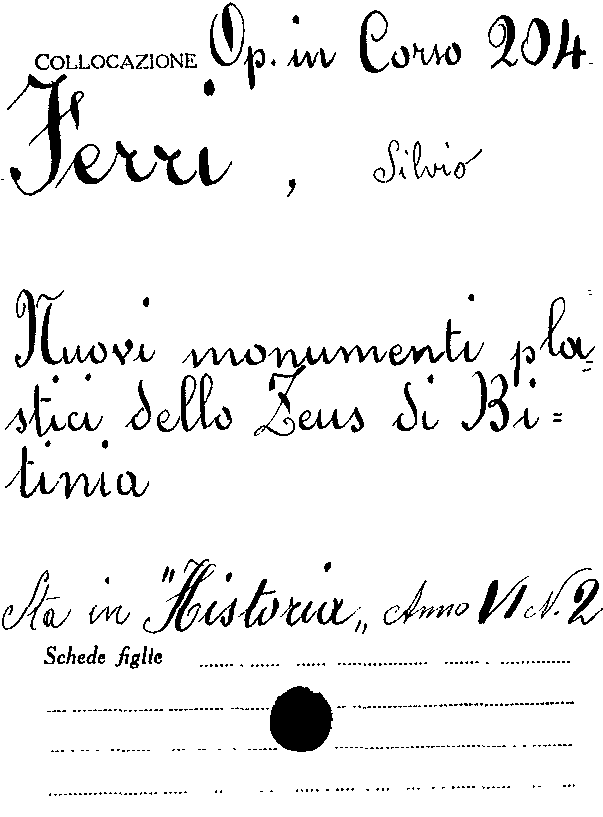 COLLOCAZIONE Op. in Corso 204
Ferri, Silvio
Nuovi monumenti pla=
stici dello Zeus di Bi=
tinia
Sta in "Historia„ Anno VI N. 2
Schede figlie